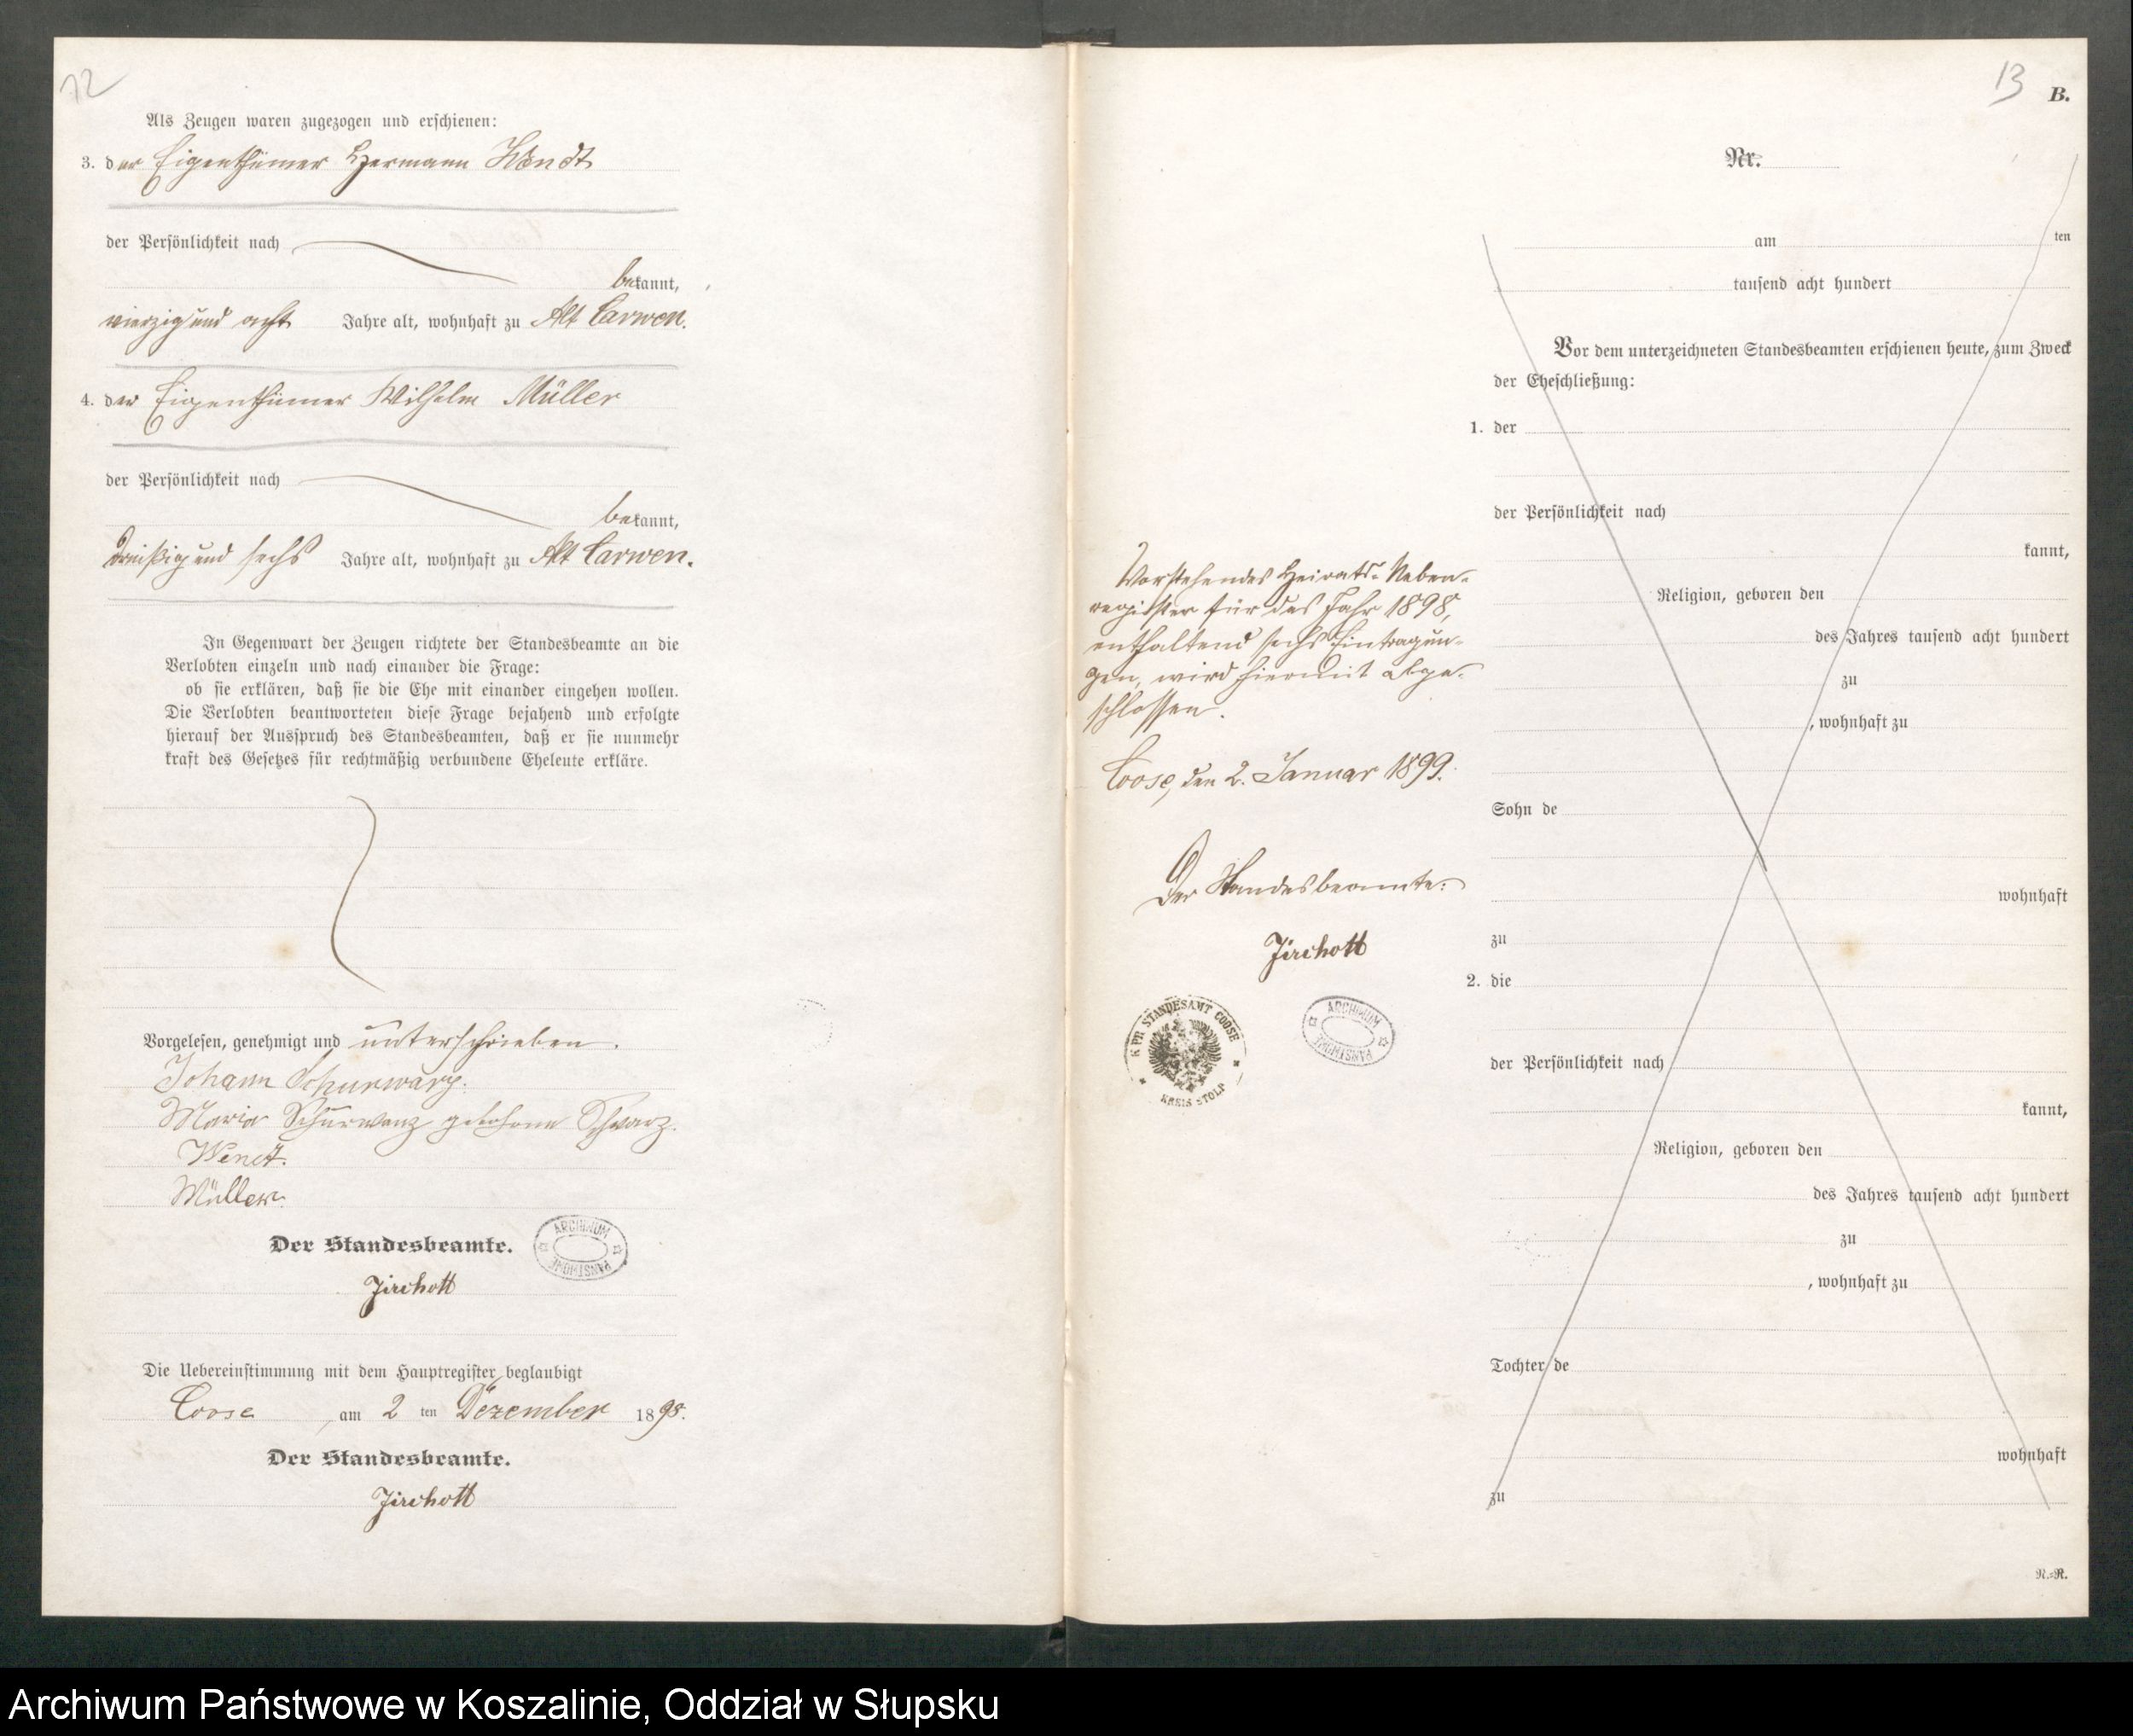 12
Als Zeugen waren zugezogen und erschienen:
3. der Eigenthümer Hermann Wendt
der Persönlichkeit nach
bekannt,
vierzig und acht Jahre alt, wohnhaft zu Alt Carwen.
4. der Eigenthümer Wilhelm Müller
der Persönlichkeit nach
bekannt,
dreißig und sechs Jahre alt, wohnhaft zu Alt Carwen.
In Gegenwart der Zeugen richtete der Standesbeamte an die
Verlobten einzeln und nach einander die Frage:
ob sie erklären, daß sie die Ehe mit einander eingehen wollen.
Die Verlobten beantworteten diese Frage bejahend und erfolgte
hierauf der Ausspruch des Standesbeamten, daß er sie nunmehr
kraft des Gesetzes für rechtmäßig verbundene Eheleute erkläre.
Vorgelesen, genehmigt und unterschrieben.
Johann Schurwanz.
Maria Schurwanz geborene Schwarz.
Wendt.
Müller.
Der Standesbeamte.
ARCHIWUM PAŃSTWOWE
Jirchott
Die Uebereinstimmung mit dem Hauptregister beglaubigt
Coose, am 2 ten Dezember 1898.
Der Standesbeamte.
Jirchott
13
B.
Nr.
am ten
tausend acht hundert
Vor dem unterzeichneten Standesbeamten erschienen heute, zum Zweck
der Eheschließung:
1. der
der Persönlichkeit nach
kannt,
Religion, geboren den
des Jahres tausend acht hundert
zu
, wohnhaft zu
Sohn de
wohnhaft
zu
2. die
der Persönlichkeit nach
kannt,
Religion, geboren den
des Jahres tausend acht hundert
zu
, wohnhaft zu
Tochter de
wohnhaft
zu
N.=R.
Vorstehendes Heirats-Neben-
register für das Jahr 1898,
enthaltend sechs Eintragun-
gen, wird hiermit abge-
schlossen.
Coose, den 2. Januar 1899.
Der Standesbeamte:
Jirchott
K PR STANDESAMT COOSE
KREIS STOLP
ARCHIWUM PAŃSTWOWE
Archiwum Państwowe w Koszalinie, Oddział w Słupsku